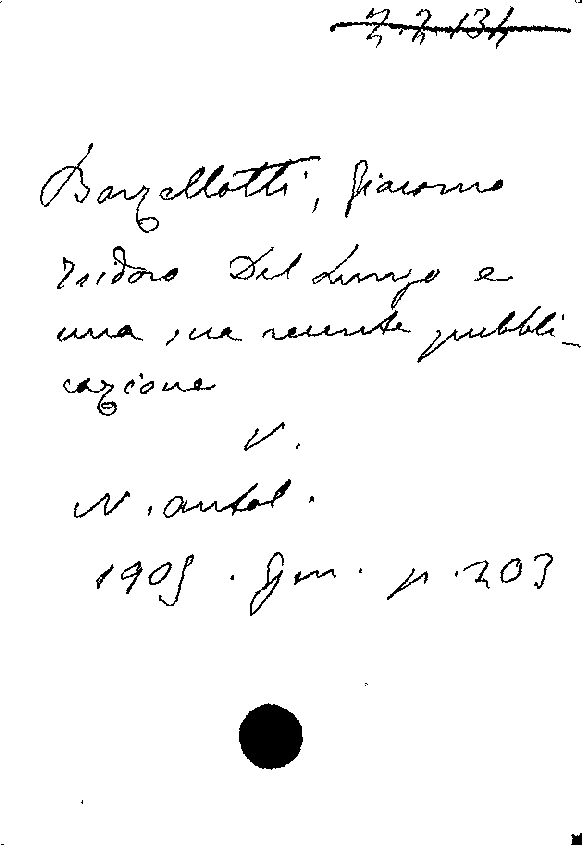 2.2.134
Barzellotti, Giacomo
Isidoro Del Lungo e
una sua recente pubbli-
cazione
V.
N. antol.
1905. Gen. p. 203